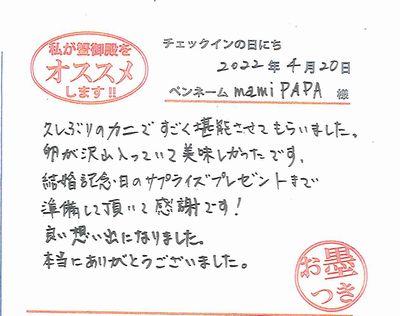 私が蟹御殿を
オススメ
します!!
チェックインの日にち
2022年4月20日
ペンネーム mami PAPA 様
久しぶりのカニですごく堪能させてもらいました。
卵が沢山入っていて美味しかったです。
結婚記念日のサプライズプレゼントまで
準備して頂いて感謝です!
良い想い出になりました。
本当にありがとうございました。
お墨
つき